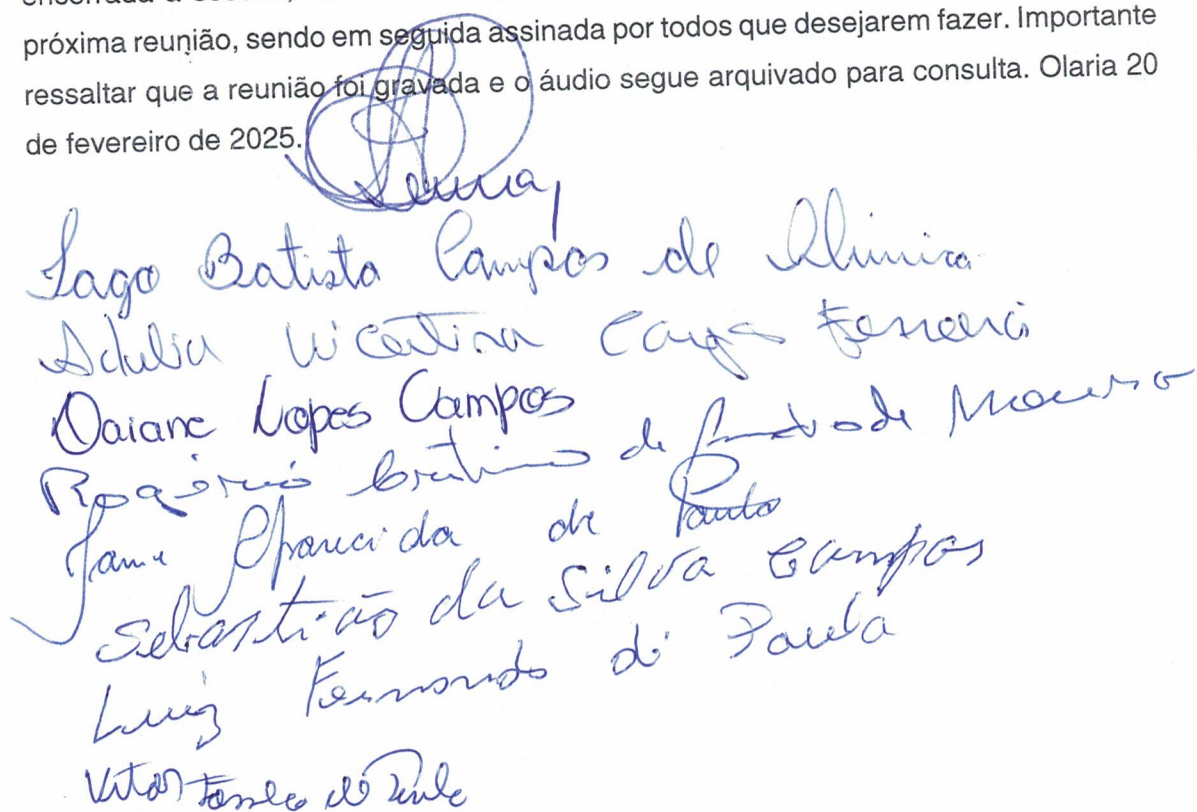 próxima reunião, sendo em seguida assinada por todos que desejarem fazer. Importante
ressaltar que a reunião foi gravada e o áudio segue arquivado para consulta. Olaria 20
de fevereiro de 2025.
Iago Batista Campos de
Ferreira
Daiane Lopes Campos
Rogério de Andrade
Aparecida de Paula
Sebastião da Silva Campos
Luiz Fernando de Paula
Vitor de Paula